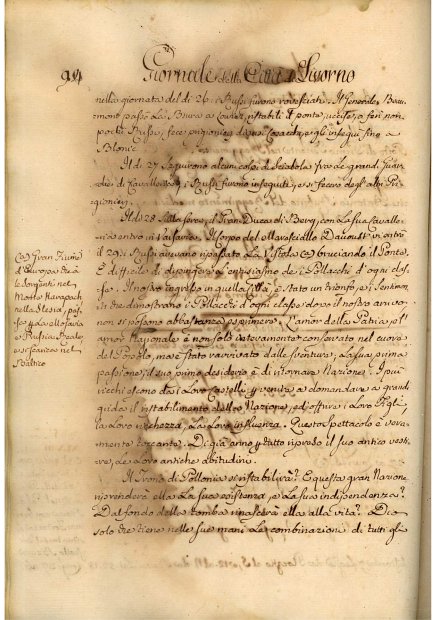 94 Giornale della Città di Livorno
nella giornata del di 26. i Russi furono rovesciati. Il Generale Beau-
mont passò la Bzura a Lowiez, ristabilì il ponte, uccise, o ferì non
pochi Russi, fece prigionieri Cosacchi, e gl' inseguì fino a
Blonie.
Il di 27. seguirono alcuni colpi di Sciabola fra le grandi Guar-
die di Cavalleria; i Russi furono inseguiti, e si fecero degl' altri Pri-
gionieri.
Il di 28. sulla sera, il Gran Duca di Berg, con la sua Cavalle-
ria entrò in Varsavia. Il Corpo del Maresciallo Davoust vi entrò
il 29. i Russi avevano ripassato la Vistola (a) bruciando il Ponte.
È difficile di dipingere l'entusiasmo de' Pollacchi d'ogni clas-
se. Il nostro ingresso in quella Città, è stato un trionfo, e i Sentimen-
ti che dimostrano i Pollacchi d'ogni classe dopo il nostro arrivo
non si possono abbastanza esprimere. L'amor della Patria, e l'
amor Nazionale è non solo interamente conservato nel cuore
del Popolo, ma è stato ravvivato dalle sventure, la sua prima
passione, il suo primo desiderio è di ritornar Nazione. I più
ricchi escono da i loro Castelli, e vengono a domandare a grandi
grida il ristabilimento della Nazione, ed offrire i loro Figli,
la loro ricchezza, e la loro influenza. Questo spettacolo è vera-
mente toccante. Di già anno per tutto ripreso il suo antico vesti-
re, le loro antiche abitudini.
Il Trono di Pollonia si ristabilirà? E questa gran Nazione
riprenderà ella la sua esistenza, e la sua indipendenza?
Dal fondo della tomba rinascerà ella alla vita? Dio
solo che tiene nelle sue mani le combinazioni di tutti gli
(a) Gran Fiume
d'Europa che à
le Sorgenti nel
Monte
nella Slesia, pas-
sa per la Pollonia
e Prussia Reale,
e si scarica nel
Baltico